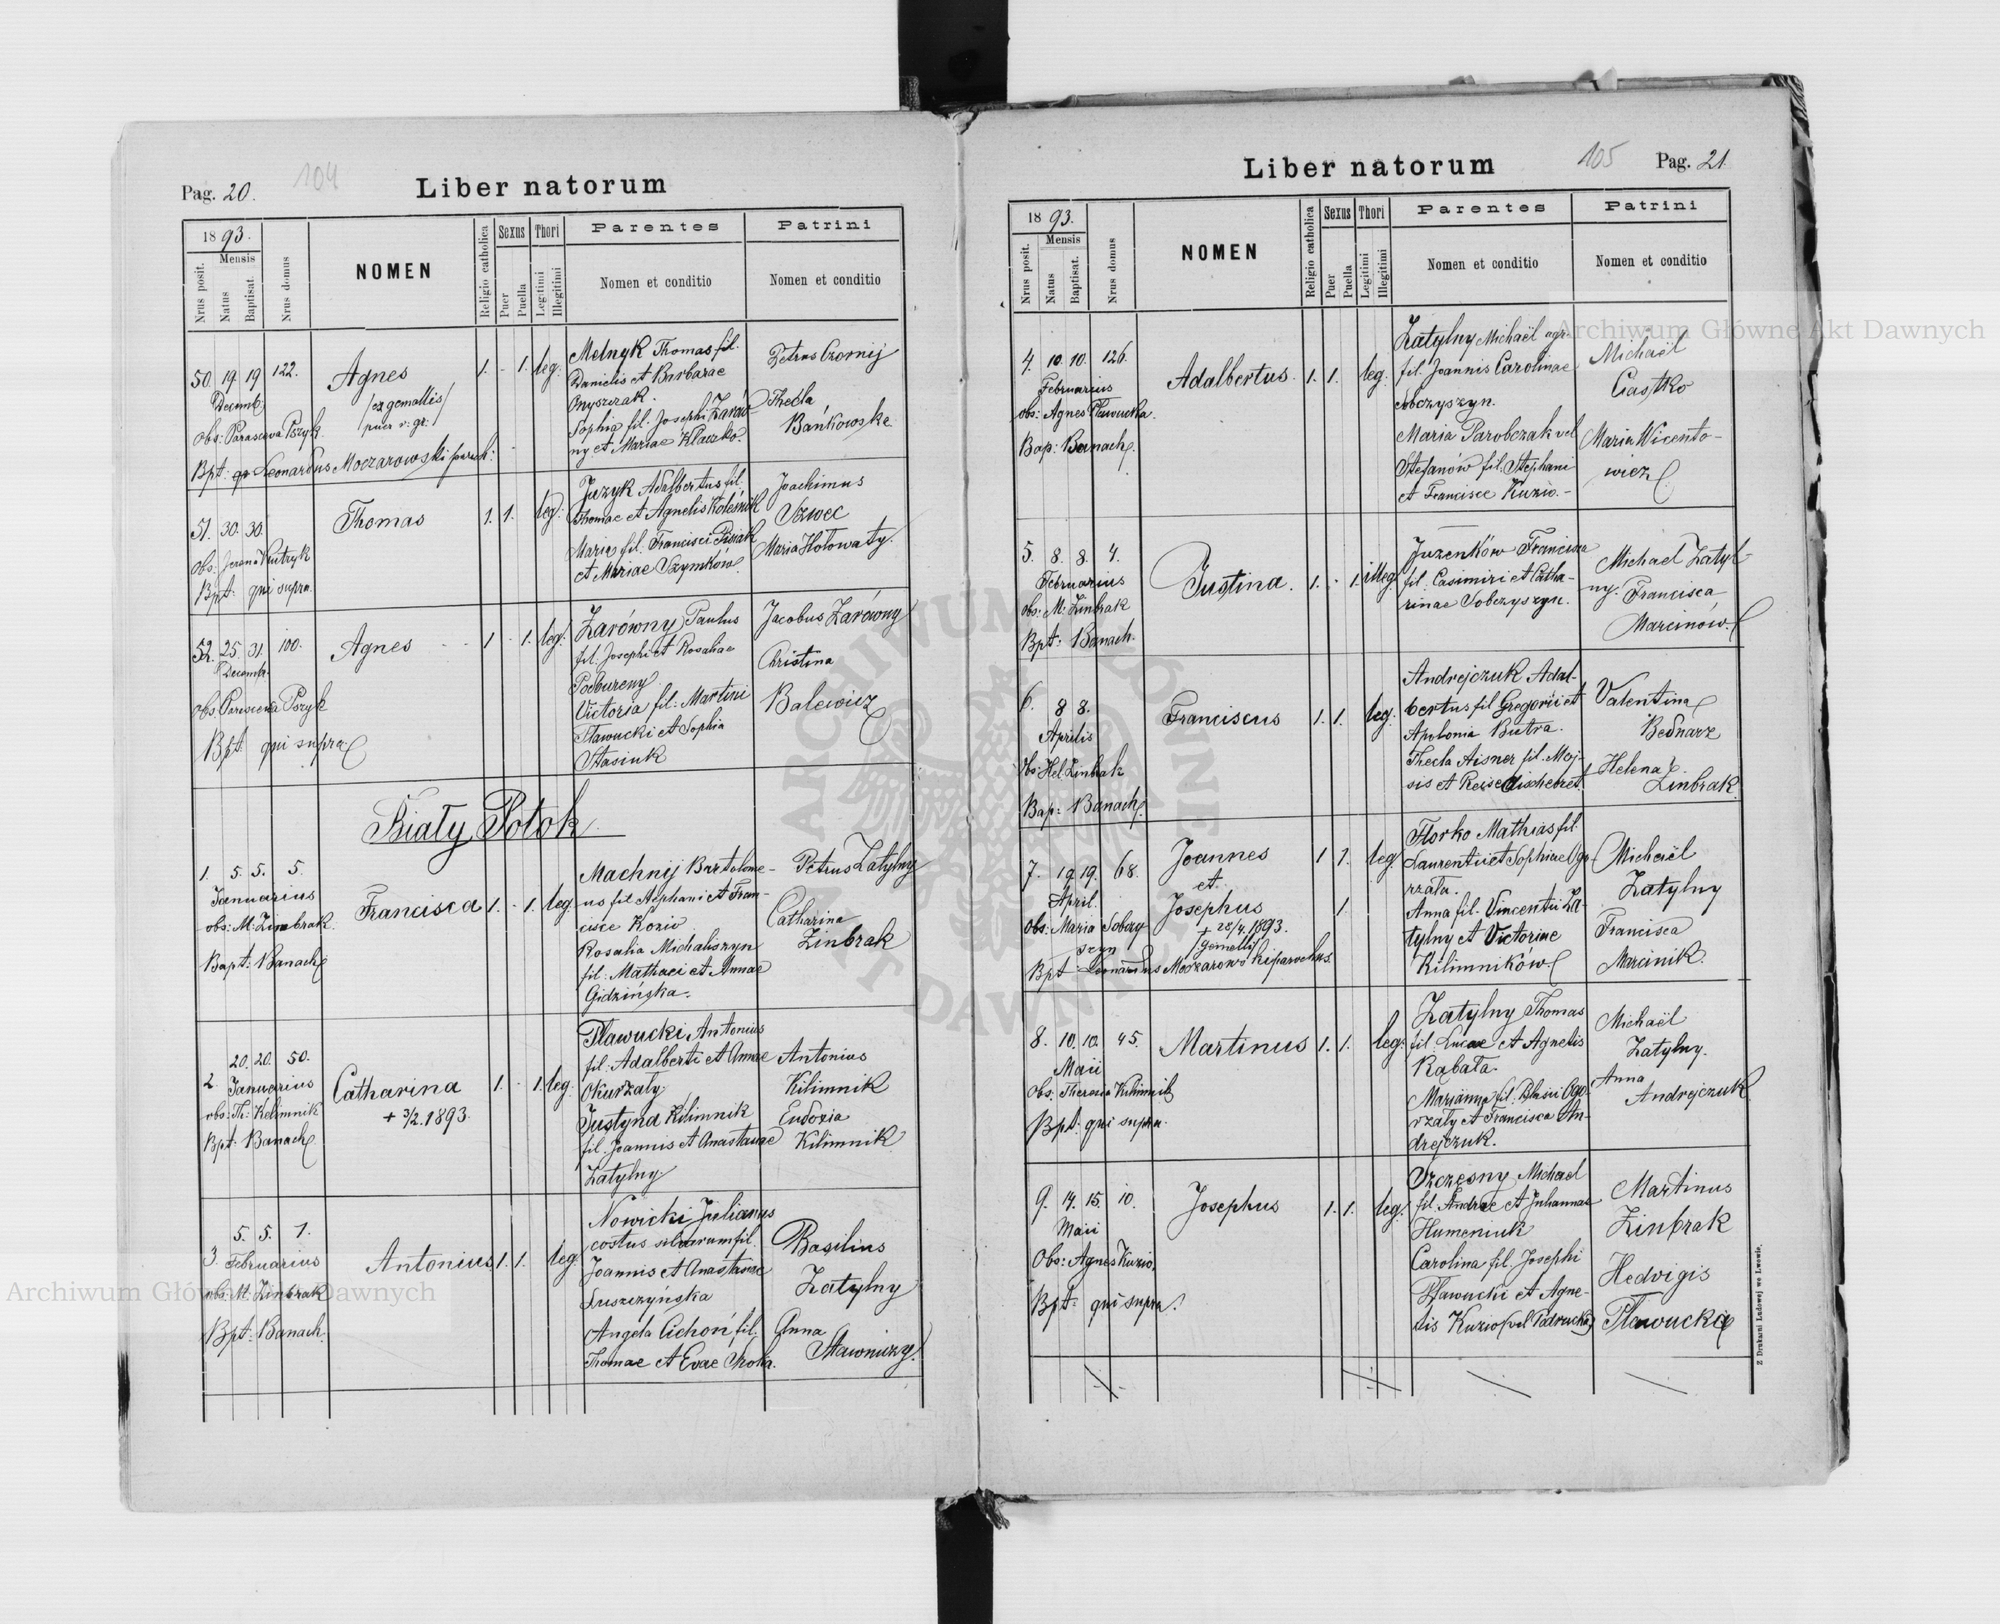 Pag. 20.
104
Liber natorum
18 93.
Mensis
Nrus posit.
Natus
Baptisat.
Nrus domus
NOMEN
Religio catholica
Sexus
Puer
Puella
Thori
Legitimi
Illegitimi
Parentes
Nomen et conditio
Patrini
Nomen et conditio
50. 19. 19 122.
Decemb.
obs: Parasceva Pszyk.
Bpt: Leonardus Moczarowski paroch:
Agnes
/ex gemellis/
puer v: gr:/
1. - 1. leg.
Melnyk Thomas fil.
Danielis et Barbarae
Onyszczak.
Sophia fil. Josephi Zarów-
ny et Mariae Klaczko.
Petrus Czornij
Thecla
Bańkowska
51. 30. 30.
obs:
Bpt: qui supra.
Thomas
1. 1. leg.
Juzyk Adalbertus fil.
Thomae et Agnetis Koleśnik
Maria fil. Francisci
et Mariae Szymków.
Joachimus
Szwec
Maria Hołowaty.
52. 25. 31. 100.
Decemb.
obs. Parasceva Pszyk
Bpt qui supra
Agnes
1 - 1. leg.
Zarówny Paulus
fil. Josephi et Rosaliae
Podbureny.
Victoria fil. Martini
Sławucki et Sophia
Stasiuk
Jacobus Zarówny
Christina
Balewicz
Biały Potok
1. 5. 5. 5.
Januarius
obs: M: Zinbrak.
Bapt: Banach
Francisca
1. - 1. leg.
Machnij Bartolome-
us fil Stephani et Fran-
cisce Koziw
Rosalia Michaliszyn
fil. Mathaei et Annae
Gidzińska.
Petrus Zatylny
Catharina
Zinbrak
2 20. 20. 50.
Januarius
obs: Th: Kilimnik
Bpt: Banach
Catharina
+ 3/2. 1893.
1. - 1. leg.
Sławucki Antonius
fil. Adalberti et Annae
Okurzały
Justyna Kilimnik
fil. Joannis et Anastasiae
Zatylny
Antonius
Kilimnik
Eudoxia
Kilimnik
3. 5. 5. 7.
Februarius
obs: M. Zinbrak
Bpt: Banach.
Antonius
1. 1. leg
Nowicki Julianus
costus silvarum fil.
Joannis et Anastasiae
Łuszczyńska
Angela Cichoń fil.
Thomae et Evae
Basilius
Zatylny
Anna
Sławniczy.
Liber natorum
105
Pag. 21.
18 93.
Mensis
Nrus posit.
Natus
Baptisat.
Nrus domus
NOMEN
Religio catholica
Sexus
Puer
Puella
Thori
Legitimi
Illegitimi
Parentes
Nomen et conditio
Patrini
Nomen et conditio
4. 10. 10. 126.
Februarius
obs: Agnes Sławucka.
Bap: Banach.
Adalbertus.
1. 1. leg.
Zatylny Michaël agr.
fil. Joannis Carolinae
Sobczyszyn.
Maria Parobczak vel
Stefanów fil. Stephani
et Francisce Kuziw.-
Michaël
Gastko
Maria Wicento-
wicz
5. 8. 8. 4.
Februarius
obs: M: Zinbrak
Bpt: Banach.
Justina.
1. - 1. illeg.
Juzenków Francisca
fil. Casimiri et Catha-
rinae Sobczyszyn.
Michael Zatyl-
ny. Francisca
Marcinów.
6. 8 8.
Aprilis
obs. Hel. Zinbrak
Bap: Banach.
Franciscus
1. 1. leg.
Andrejczuk Adal-
bertus fil Gregorii et
Apolonia Butra.
Thecla Aisner fil. Moj-
sis et
Valentina
Bednarz
Helena
Zinbrak
7. 19. 19. 68.
April.
obs: Maria Sobczy
szyn
Bpt Leonardus Moczarowski parochus.
Joannes
et.
Josephus
+ 28/4. 1893.
/gemelli/
1 1. leg.
1.
Florko Mathias fil.
Laurentii et Sophiae Ogo-
rzała.
Anna fil. Vincentii Za-
tylny et Victoriae
Kilimników
Michaël
Zatylny
Francisca
Marcinik.
8. 10. 10. 45.
Maii
obs: Theresia Kilimnik
Bpt: qui supra.
Martinus
1. 1. leg.
Zatylny Thomas
fil. Lucae et Agnetis
Rąbała.
Marianna fil. Blasii Ogo-
rzały et Francisca An-
drejczuk.
Michaël
Zatylny.
Anna
Andrejczuk
9. 14. 15. 10.
Maii
Obs: Agnes Kuziw.
Bpt: qui supra.
Josephus
1. 1. leg.
Szczęsny Michael
fil. Andrae et Juliannae
Humeniuk
Carolina fil. Josephi
Sławucki et Agne-
tis Kuziw (vel Padrucka)
Martinus
Zinbrak
Hedvigis
Sławucka
Z Drukarni Ludowej we Lwowie.
Archiwum Główne Akt Dawnych
Archiwum Główne Akt Dawnych
ARCHIWUM GŁÓWNE AKT DAWNYCH